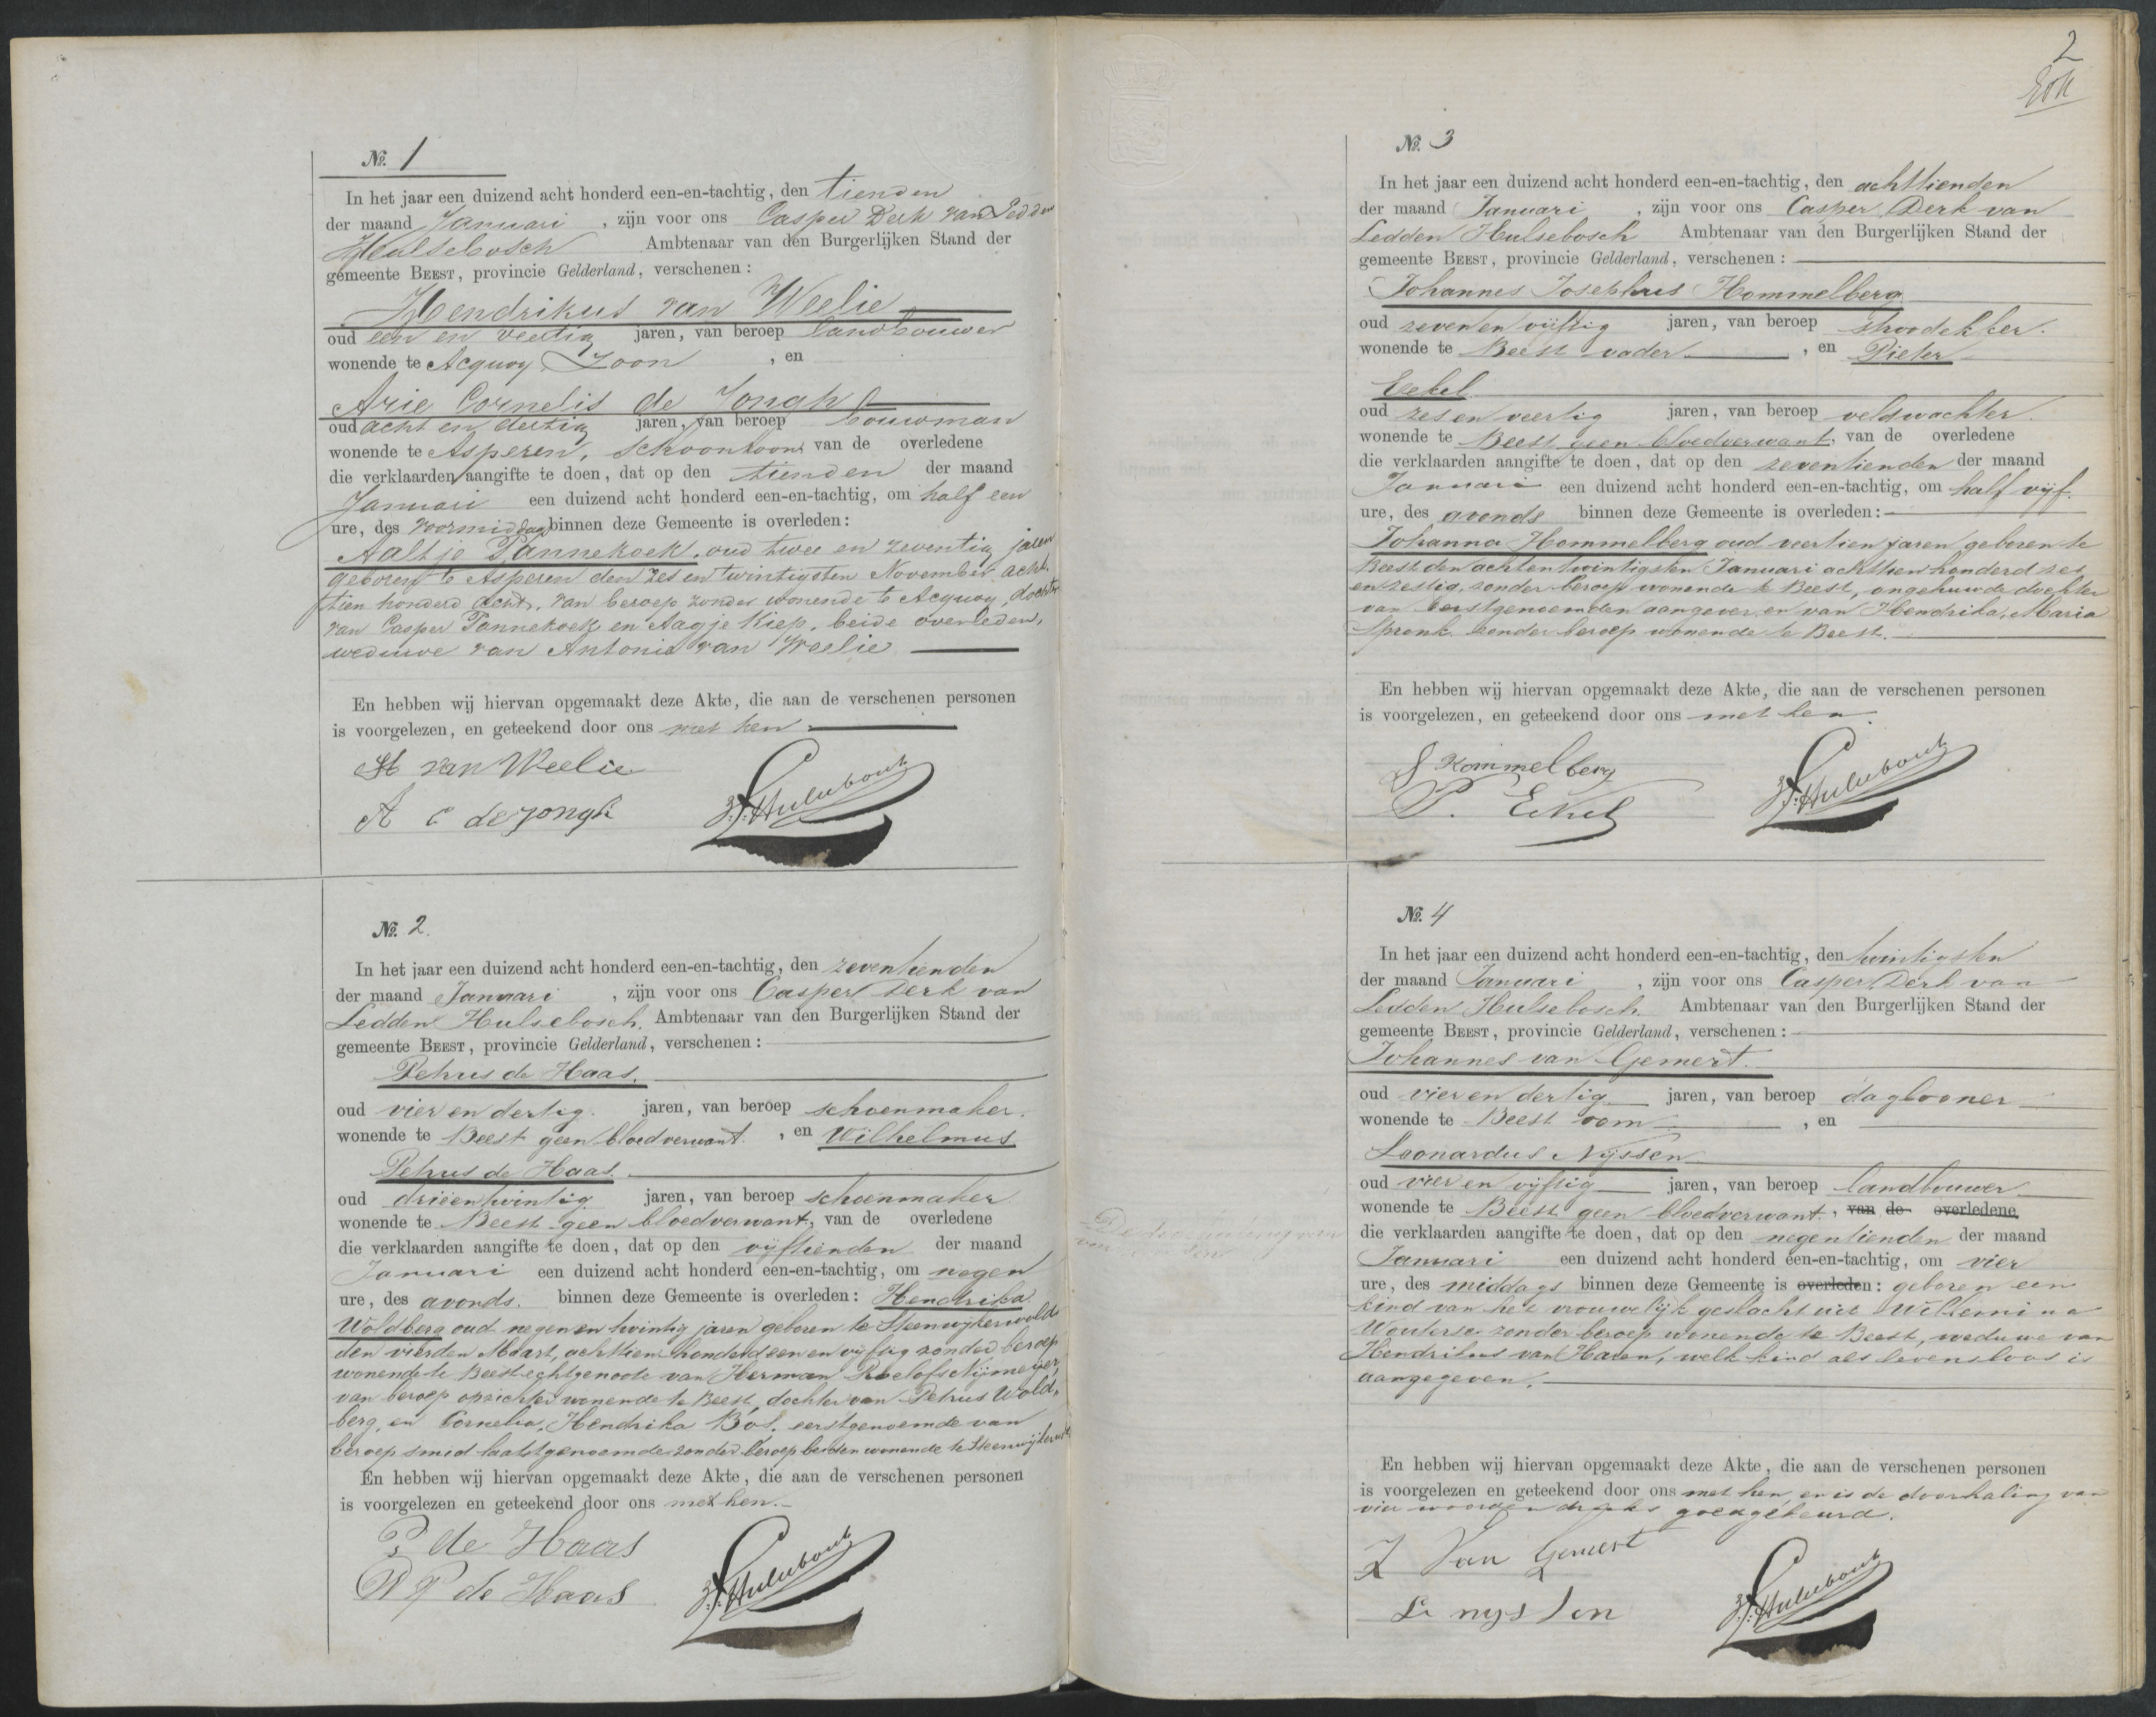 №. 1
In het jaar een duizend acht honderd een-en-tachtig, den tienden
der maand Januari , zijn voor ons Casper Derk van Ledden
Hulsebosch Ambtenaar van den Burgerlijken Stand der
gemeente BEEST, provincie Gelderland, verschenen:
Hendrikus van Weelie
oud een en veertig jaren, van beroep landbouwer
wonende te Acquoy Zoon , en
Arie Cornelis de Jongh
oud acht en dertig jaren, van beroep bouwman
wonende te Asperen, schoonzoon van de overledene
die verklaarden aangifte te doen, dat op den tienden der maand
Januari een duizend acht honderd een-en-tachtig, om half een
ure, des voormiddag binnen deze Gemeente is overleden:
Aaltje Pannekoek, oud twee en zeventig jaren
geboren te Asperen den zes en twintigsten November acht-
tien honderd acht, van beroep zonder wonende te Acquoy, dochter
van Casper Pannekoek en Aagje Kiep, beide overleden,
weduwe van Antonie van Weelie
En hebben wij hiervan opgemaakt deze Akte, die aan de verschenen personen
is voorgelezen, en geteekend door ons met hen
H van Weelie
A C de Jongh
Hulsebosch
№. 2.
In het jaar een duizend acht honderd een-en-tachtig, den zeventienden
der maand Januari , zijn voor ons Casper Derk van
Ledden Hulsebosch. Ambtenaar van den Burgerlijken Stand der
gemeente BEEST, provincie Gelderland, verschenen:
Petrus de Haas.
oud vier en dertig. jaren, van beroep schoenmaker.
wonende te Beest geen bloedverwant. , en Wilhelmus
Petrus de Haas.
oud drieentwintig jaren, van beroep schoenmaker
wonende te Beest geen bloedverwant, van de overledene
die verklaarden aangifte te doen, dat op den vijftienden der maand
Januari een duizend acht honderd een-en-tachtig, om negen
ure, des avonds. binnen deze Gemeente is overleden: Hendrika
Woldberg oud negenen twintig jaren geboren te Steenwijkerwold
den vierden Maart, achttien honderd een en vijftig zonder beroep
wonende te Beest echtgenoote van Herman Roelofs Nijmeijer,
van beroep opzichter wonende te Beest, dochter van Petrus Wold-
berg, en Cornelia, Hendrika Bos, eerstgenoemde van
beroep smid laatstgenoemde zonder beroep beiden wonende te Steenwijkerwold
En hebben wij hiervan opgemaakt deze Akte, die aan de verschenen personen
is voorgelezen en geteekend door ons met hen.
P de Haas
W P de Haas
Hulsebosch
2
№. 3
In het jaar een duizend acht honderd een-en-tachtig, den achttienden
der maand Januari , zijn voor ons Casper Derk van
Ledden Hulsebosch Ambtenaar van den Burgerlijken Stand der
gemeente BEEST, provincie Gelderland, verschenen:
Johannes Josephus Hommelberg
oud zeven en vijftig jaren, van beroep stroodekker.
wonende te Beest vader , en Pieter
Eekel
oud zes en veertig jaren, van beroep veldwachter.
wonende te Beest geen bloedverwant, van de overledene
die verklaarden aangifte te doen, dat op den zeventienden der maand
Januari een duizend acht honderd een-en-tachtig, om half vijf.
ure, des avonds binnen deze Gemeente is overleden:
Johanna Hommelberg oud veertien jaren geboren te
Beest den achtentwintigsten Januari achttien honderd zes
en zestig, zonder beroep wonende te Beest, ongehuwde dochter
van eerstgenoemden aangever en van Hendrika, Maria
Spronk zonder beroep wonende te Beest.
En hebben wij hiervan opgemaakt deze Akte, die aan de verschenen personen
is voorgelezen, en geteekend door ons met hen.
J Hommelberg
P. Eekel
Hulsebosch
№. 4
In het jaar een duizend acht honderd een-en-tachtig, den twintigsten
der maand Januari , zijn voor ons Casper Derk van
Ledden Hulsebosch. Ambtenaar van den Burgerlijken Stand der
gemeente BEEST, provincie Gelderland, verschenen:
Johannes van Gemert.
oud vier en dertig jaren, van beroep daglooner
wonende te Beest oom , en
Leonardus Nijssen
oud vier en vijftig jaren, van beroep landbouwer
wonende te Beest geen bloedverwant. , van de overledene
die verklaarden aangifte te doen, dat op den negentienden der maand
Januari een duizend acht honderd een-en-tachtig, om vier
ure, des middags binnen deze Gemeente is overleden: geboren een
kind van het vrouwelijk geslacht uit Willemina
Wouterse zonder beroep wonende te Beest, weduwe van
Hendrikus van Haren, welk kind als levensloos is
aangegeven.
En hebben wij hiervan opgemaakt deze Akte, die aan de verschenen personen
is voorgelezen en geteekend door ons met hen, en is de doorhaling van
vier woorden druks goedgekeurd.
J Van Gemert
L nyssen
Hulsebosch